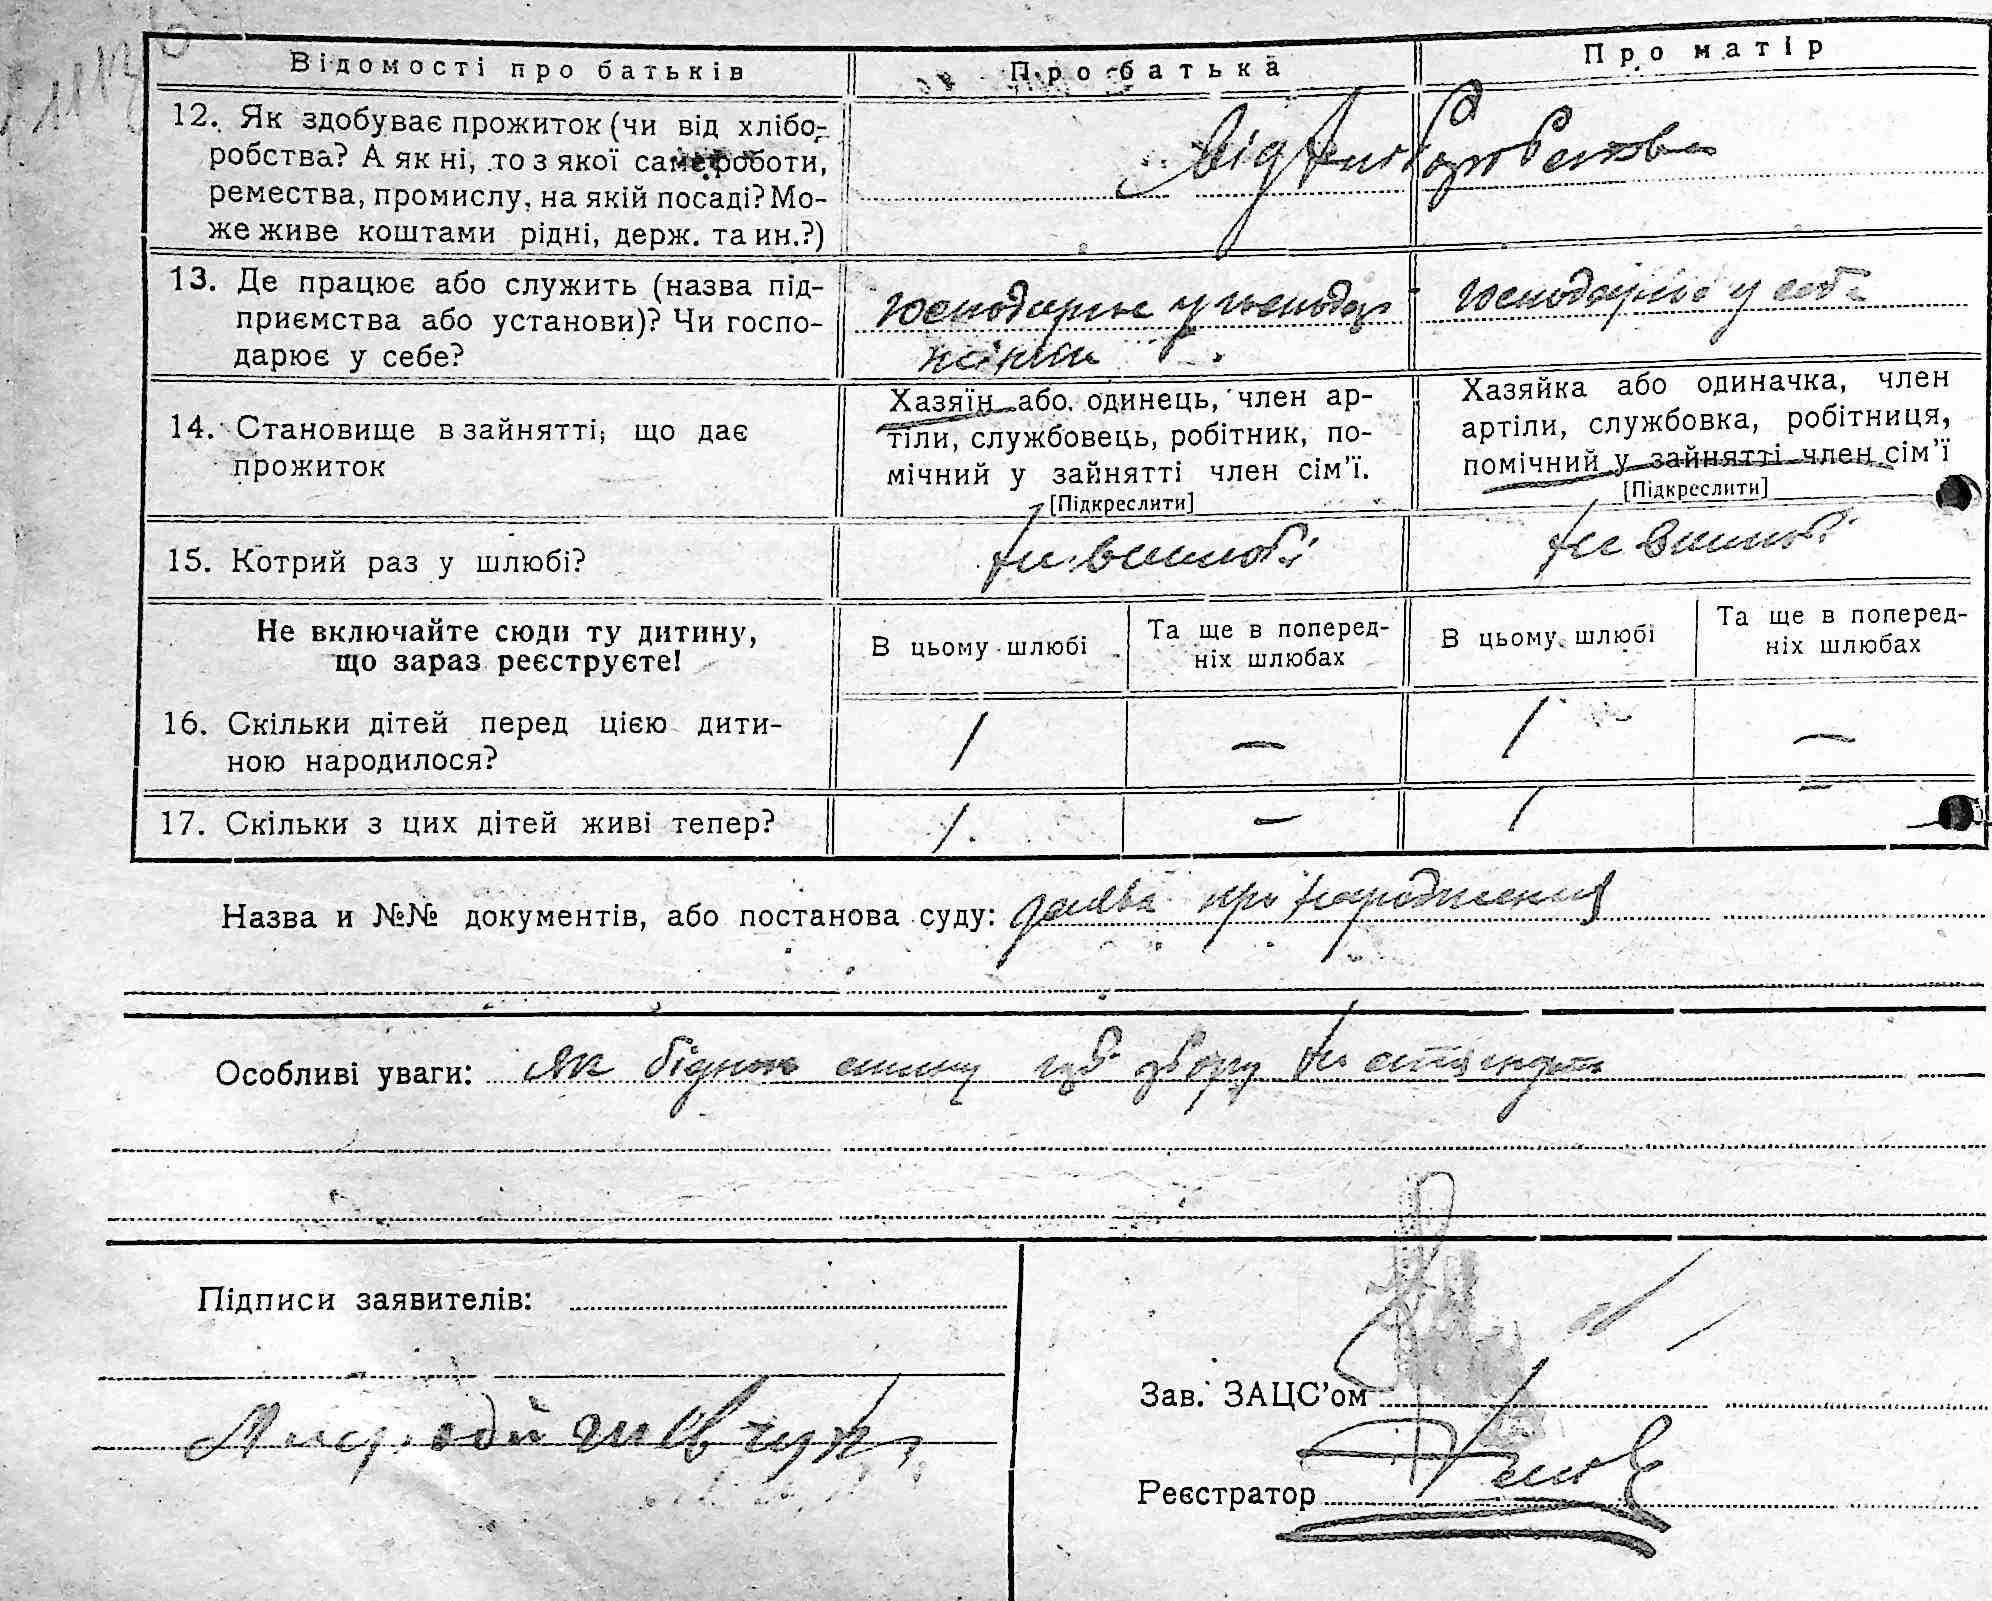 Відомості про батьків Про батька Про матір
12. Як здобуває прожиток (чи від хлібо-
робства? А як ні, то з якої саме роботи,
ремества, промислу, на якій посаді? Мо-
же живе коштами рідні, держ. та ин.?)
від хліборобства
13. Де працює або служить (назва під-
приємства або установи)? Чи госпо-
дарює у себе?
господарює у
господарює у себе
14. Становище в зайнятті, що дає
прожиток
Хазяїн або одинець, член ар-
тіли, службовець, робітник, по-
мічний у зайнятті член сім'ї.
[Підкреслити]
Хазяйка або одиначка, член
артіли, службовка, робітниця,
помічний у зайнятті член сім'ї
[Підкреслити]
15. Котрий раз у шлюбі?
Не включайте сюди ту дитину,
що зараз реєструєте!
В цьому шлюбі
Та ще в поперед-
ніх шлюбах
В цьому шлюбі
Та ще в поперед-
ніх шлюбах
16. Скільки дітей перед цією дити-
ною народилося?
1 — 1 —
17. Скільки з цих дітей живі тепер?
1 — 1 —
Назва и №№ документів, або постанова суду: заява про народження
Особливі уваги: як бідного збору не
Підписи заявителів:
Шевчук
Зав. ЗАЦС'ом
Реєстратор